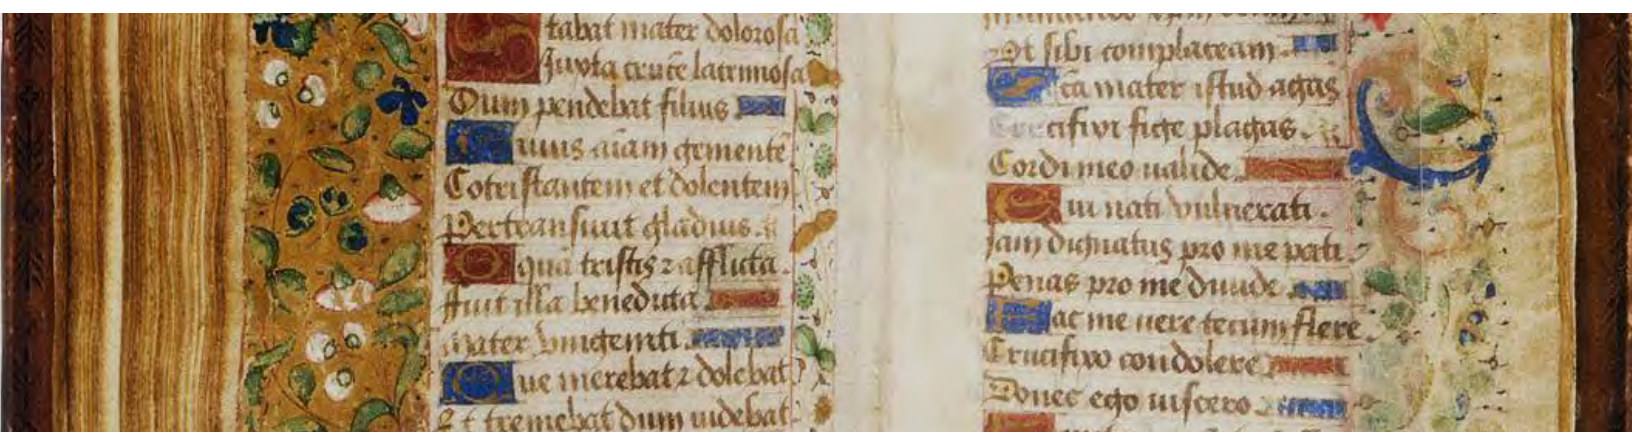 Stabat mater dolorosa
Juxta crucē lacrimosa
Dum pendebat filius
Cuius aīam gementē
Cotristantem et dolentem
Pertransiuit gladius.
O qua tristis ⁊ afflicta.
ffuit illa benedicta
Mater vnigeniti.
Que merebat ⁊ dolebat
Et tremebat dum uidebat
Ut sibi complaceam.
Scā mater istud agas
Crucifixi fige plagas.
Cordi meo ualide.
Tui nati vulnerati.
Jam dignatus pro me pati.
Penas pro me diuide.
Fac me uere tecum flere
Crucifixo condolere
Donec ego uixero.